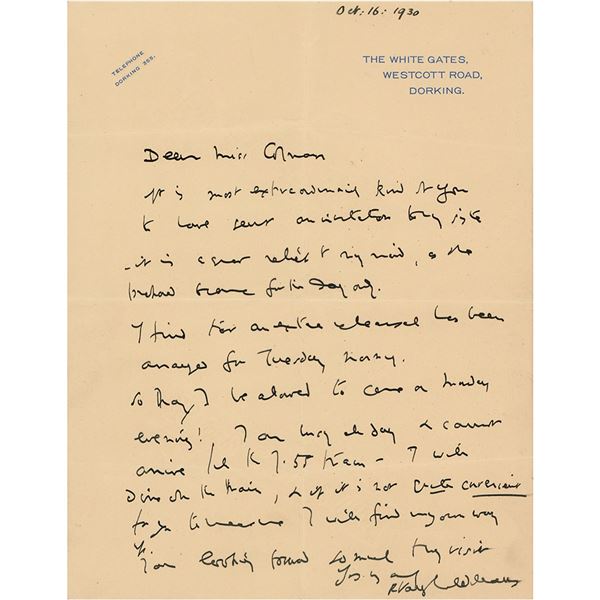 Oct: 16: 1930
TELEPHONE
DORKING 355.
THE WHITE GATES,
WESTCOTT ROAD,
DORKING.
Dear Miss Colman
It is most extraordinarily kind of you
to have sent an invitation to my
- it is a great relief to my mind, as she
for the day only.
I find that an extra rehearsal has been
arranged for Tuesday morning.
So may I be allowed to come on Monday
evening! I am busy all day & cannot
arrive till the 7.55 train - I will
dine on the train, & if it is not quite convenient
for you to meet me I will find my own way
I am looking forward so much to my visit
Yrs
R Vaughan Williams